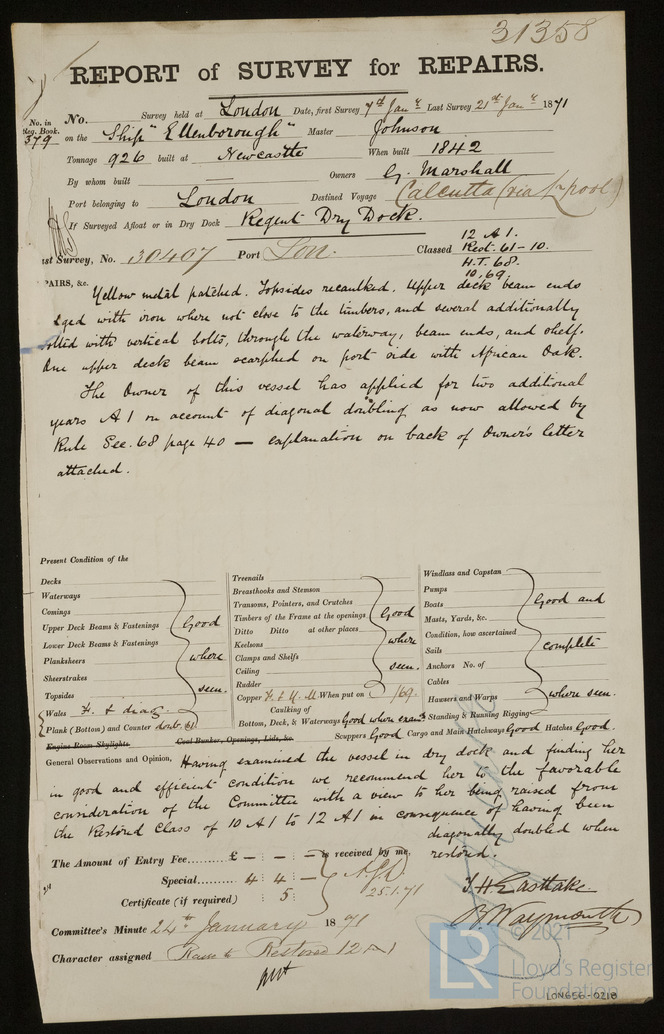 31358
REPORT of SURVEY for REPAIRS.
No. in Reg. Book. 379
No. Survey held at London Date, first Survey 7th Jany Last Survey 21st Jany 1871
on the Ship "Ellenborough" Master Johnson
Tonnage 926 built at Newcastle When built 1842
By whom built — Owners G. Marshall
Port belonging to London Destined Voyage Calcutta (via L'pool)
If Surveyed Afloat or in Dry Dock Regent Dry Dock.
12 A 1.
st Survey, No. 30407 Port Lon. Classed Rest. 61-10.
H.T. 68.
10.69.
PAIRS, &c. Yellow metal patched. Topsides recaulked. Upper deck beam ends
dged with iron where not close to the timbers, and several additionally
olted with vertical bolts, through the waterway, beam ends, and shelf.
One upper deck beam scarphed on port side with African Oak.
The Owner of this vessel has applied for two additional
years A 1 on account of diagonal doubling as now allowed by
Rule Sec. 68 page 40 — explanation on back of Owner's letter
attached.
Present Condition of the
Decks
Waterways
Comings
Upper Deck Beams & Fastenings Good
Lower Deck Beams & Fastenings
Planksheers where
Sheerstrakes
Topsides seen.
Wales F. & diag.
Plank (Bottom) and Counter doub. 61
Engine Room Skylights Coal Bunker, Openings, Lids, &c.
Treenails
Breasthooks and Stemson
Transoms, Pointers, and Crutches
Timbers of the Frame at the openings Good
Ditto Ditto at other places
Keelsons where
Clamps and Shelfs
Ceiling seen.
Rudder
Copper F. & Y. M. When put on /69.
Caulking of
Bottom, Deck, & Waterways Good where examd
Scuppers Good Cargo and Main Hatchways Good Hatches Good.
Windlass and Capstan
Pumps
Boats Good and
Masts, Yards, &c.
Condition, how ascertained
Sails complete
Anchors No. of
Cables
Hawsers and Warps where seen.
Standing & Running Rigging
General Observations and Opinion, Having examined the vessel in dry dock and finding her
in good and efficient condition we recommend her to the favorable
consideration of the Committee with a view to her being raised from
the Restored Class of 10 A 1 to 12 A 1 in consequence of having been
diagonally doubled when
restored.
The Amount of Entry Fee...... £ — : — : — is received by me,
Special......... 4 : 4 : —
Certificate (if required) : 5 : 25.1.71
T. H. Eastlake
B. Waymouth
Committee's Minute 24th January 1871
Character assigned Raise to Restored 12 A 1
© 2021
LR
Lloyd's Register
Foundation
LON656-0218